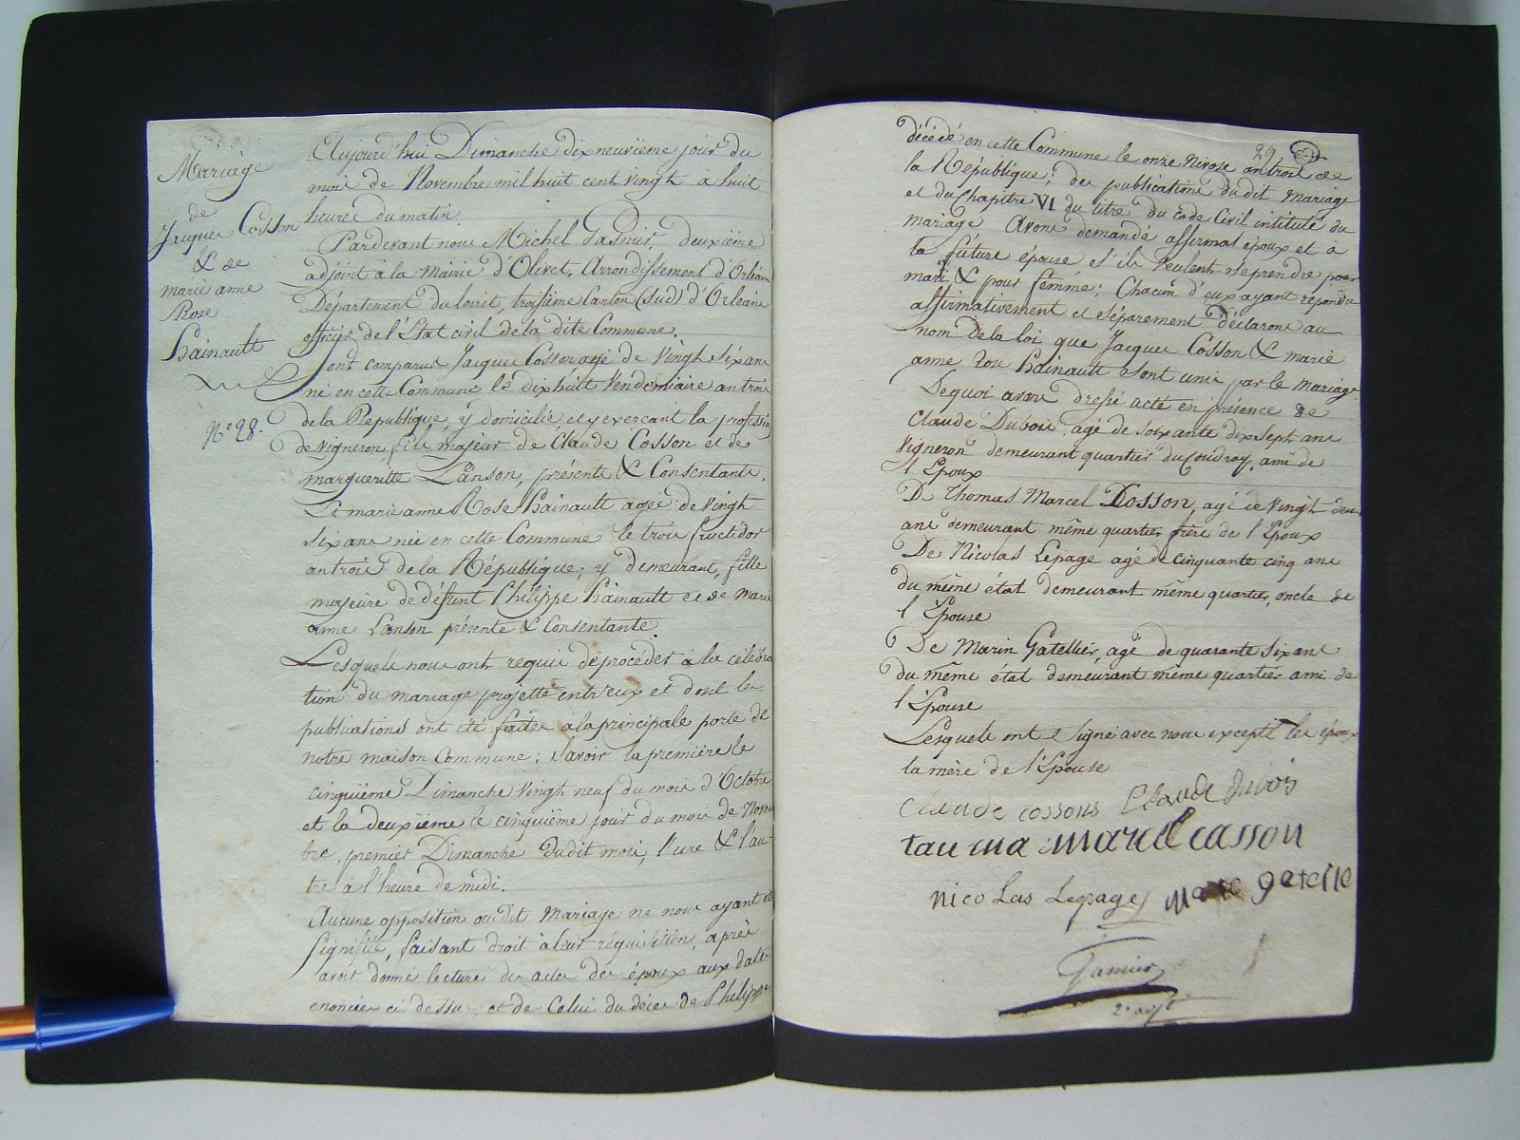 Mariage
de
Jacques Cosson
& de
marie anne
Rose
hainault
N.° 28.
Aujourd'hui Dimanche dix neuvième jour du
mois de Novembre mil huit cent vingt à huit
heures du matin
Pardevant nous Michel Gasnier, deuxième
adjoint à la Mairie d'Olivet, Arrondissement d'Orléans
Département du loiret, troisième Canton (Sud) d'Orléans
officier de l'Etat civil de la dite Commune.
Sont comparus Jacques Cosson agé de vingt six ans
né en cette Commune le dix huit Vendémiaire an trois
de la République, y domicilié, et y exerçant la profession
de vigneron, fils majeur de Claude Cosson et de
marguerite Lanson, présents & Consentants.
Et marie anne Rose hainault agée de vingt
six ans née en cette Commune le trois fructidor
an trois de la République, y demeurant, fille
majeure de défunt Philippe hainault et de Marie
anne Lanson présente & Consentante.
Lesquels nous ont requis de procéder à la célébra
tion du mariage projetté entr'eux et dont les
publications ont été faites a la principale porte de
notre maison Commune : Savoir la première le
cinquième Dimanche vingt neuf du mois d'Octobre
et la deuxième le cinquième jour du mois de Novem
bre, premier Dimanche dudit mois, l'une & l'au
tre à l'heure de midi.
Aucune opposition au dit Mariage ne nous ayant été
signifiée, faisant droit à leur réquisition, après
avoir donné lecture des actes des époux aux dates
enoncées ci dessus et de Celui du décès de Philippe
29
décédé en cette Commune le onze Nivose an trois de
la République; des publications du dit mariage
et du Chapitre VI du titre du Code Civil intitulé du
mariage Avons demandé au futur époux et à
la future épouse s'ils veulent se prendre pour
mari & pour femme; Chacun d'eux ayant répondu
affirmativement et séparement déclarons au
nom de la loi que Jacques Cosson & marie
anne rose hainault sont unis par le mariage
De quoi avons dressé acte en présence de
Claude Dubois, agé de soixante dix sept ans
vigneron demeurant quartier du Coudray, ami de
l'Epoux
De Thomas Marcel Cosson, agé de vingt deux
ans demeurant même quartier frère de l'Epoux
De Nicolas Lepage agé de Cinquante cinq ans
du même état demeurant même quartier, oncle de
l'Epouse
De Marin Gatellier, agé de quarante six ans
du même état demeurant même quartier ami de
l'Epouse
Lesquels ont signé avec nous excepté les époux
la mère de l'Epouse
Claude cossons Claude Dubois
tau ma marcel casson
nico las Lepage gatellie
Gasnier
2e adjt